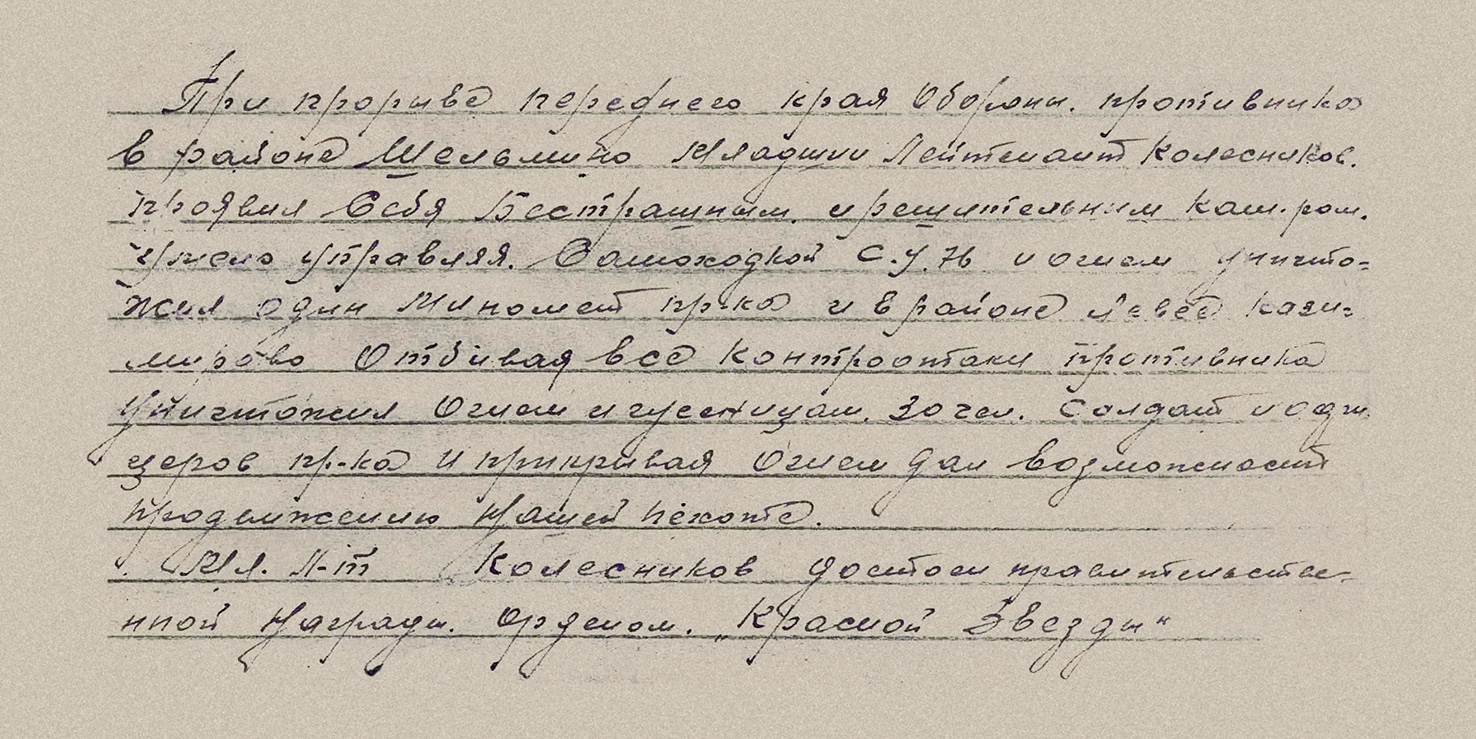 При прорыве переднего края Обороны. противника
в районе Шельмино Младший Лейтенант Колесников.
проявил Себя Бесстрашным. и решительным Ком. ром.
Умело управляя. Самоходкой С.У.76 и огнем уничто=
жил один Миномет пр-ка и в районе Левее Кази=
мирово Отбивая все Контроатаки противника
Уничтожил Огнем и гусеницам. 30 чел. Солдат и офи
церов пр-ка и прикрывая Огнем дал возможност
продвижению Нашей пехоте.
Мл. Л-т Колесников достоен правительстве-
нной Награды. Орденом. „Красной Звезды"